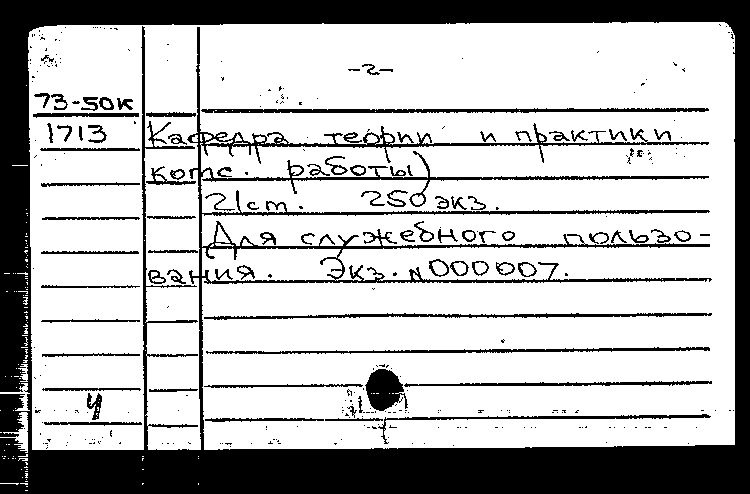 -2-
73-50к
1713 Кафедра теории и практики
комс. работы)
21ст. 250экз.
Для служебного пользо-
вания. Экз. №000007.
ч